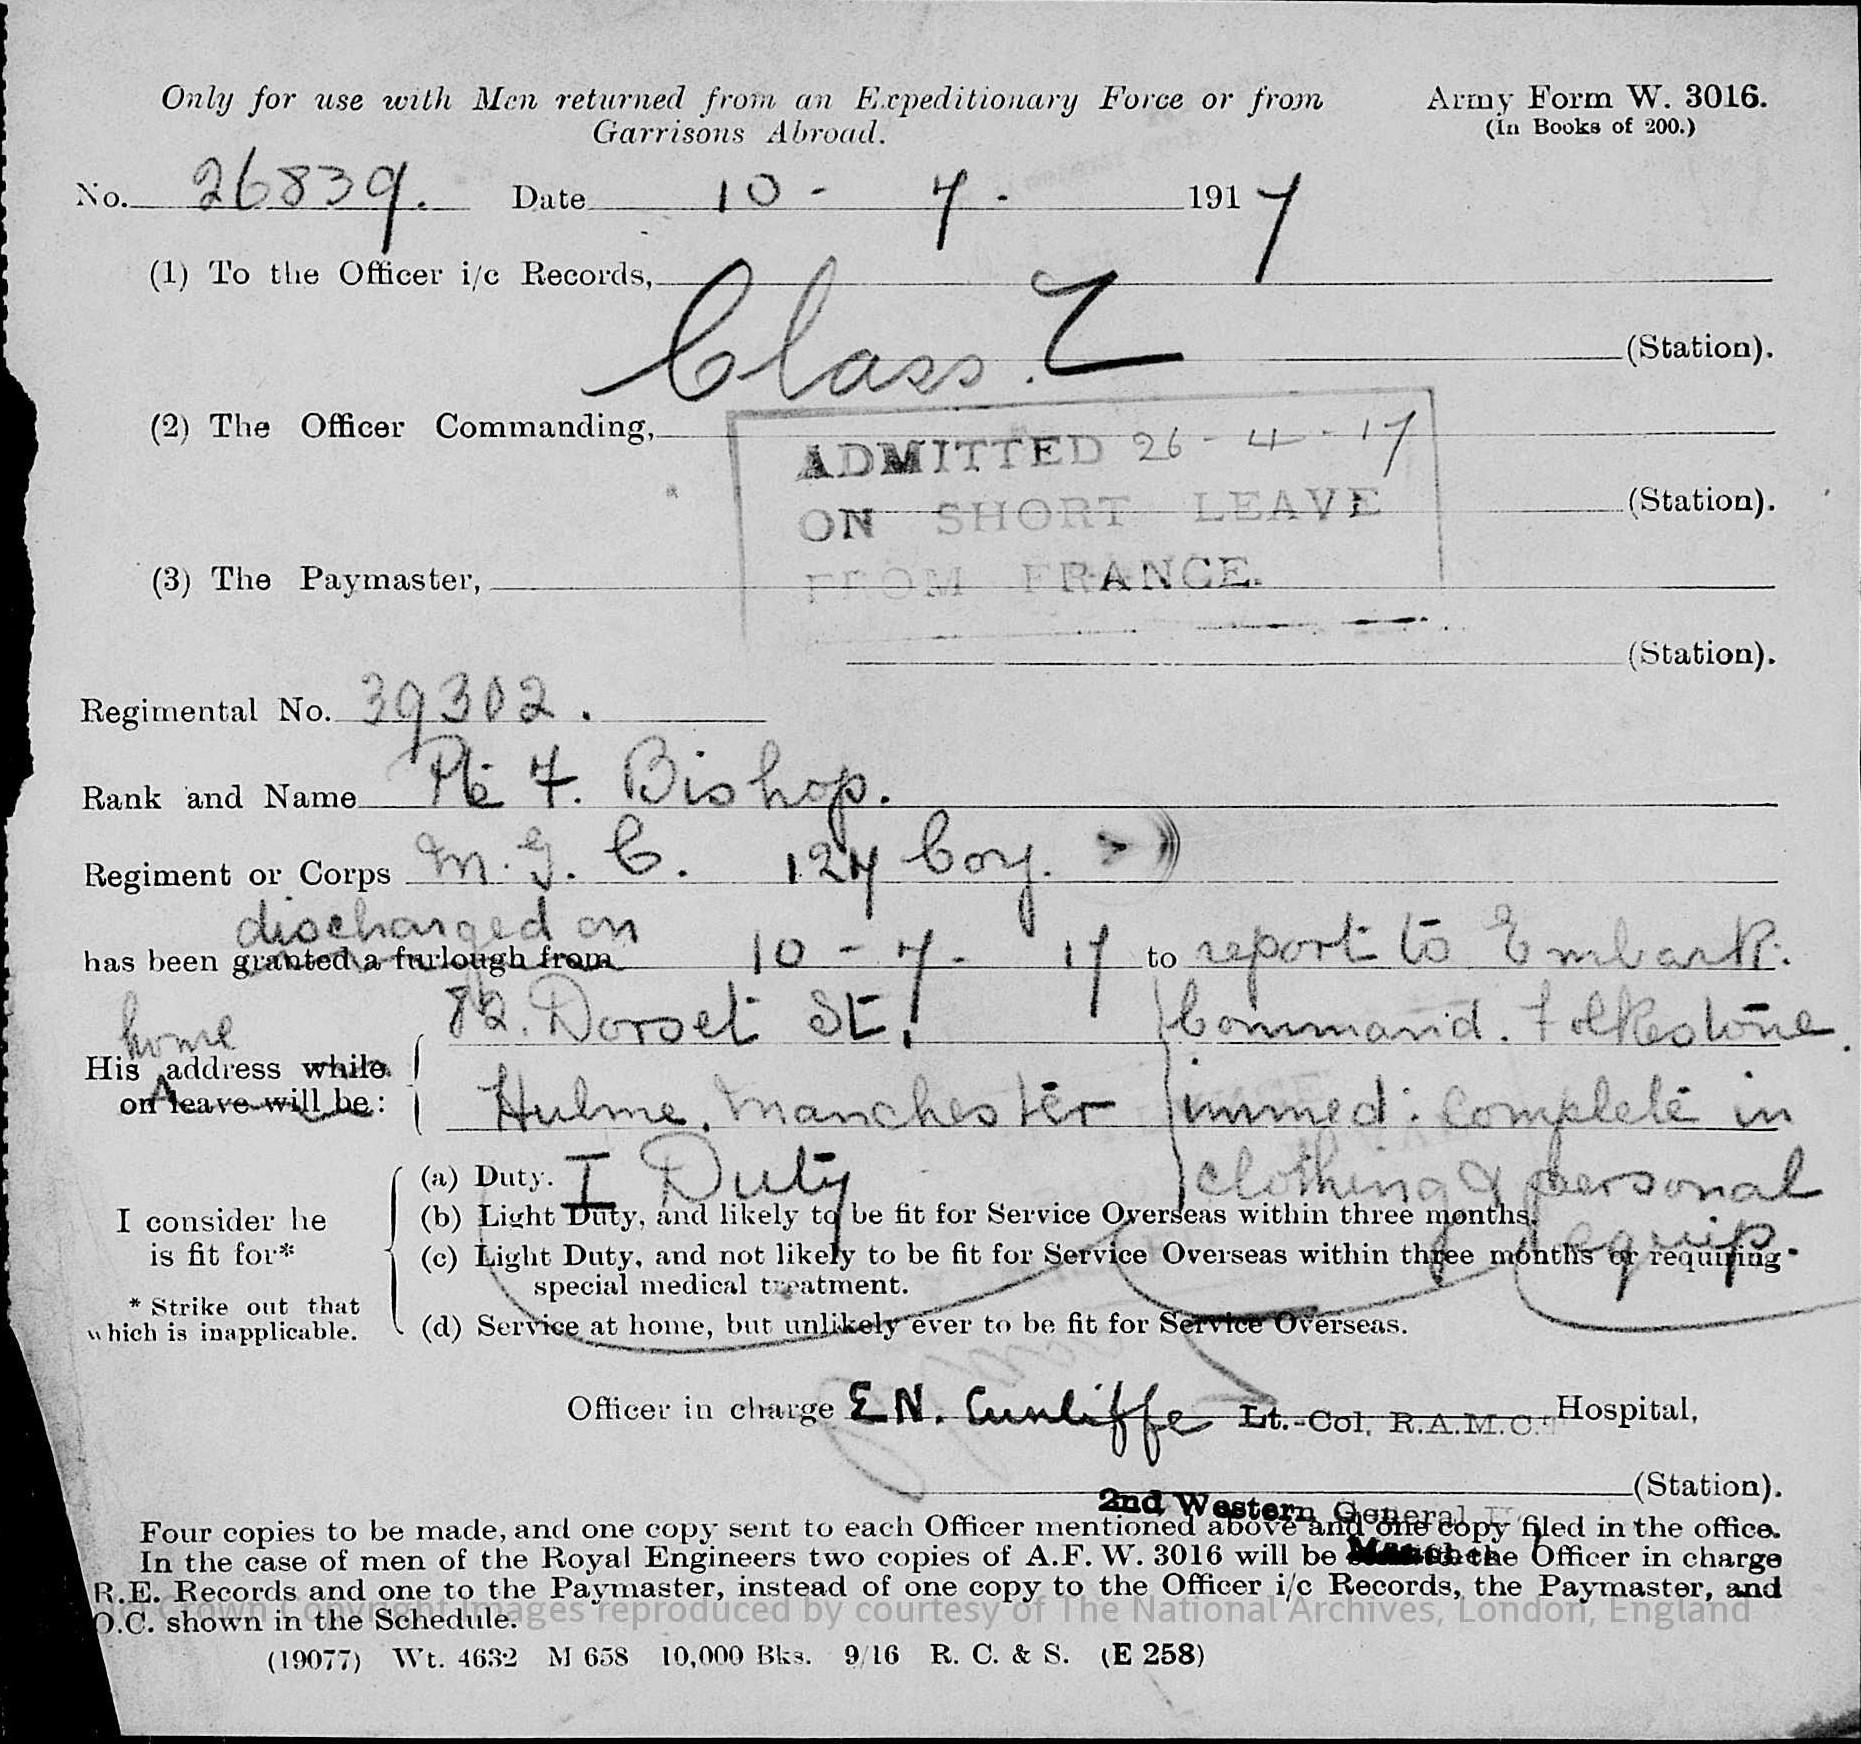 Only for use with Men returned from an Expeditionary Force or from
Garrisons Abroad.
Army Form W. 3016.
(In Books of 200.)
No. 26839. Date 10 - 7 - 1917
(1) To the Officer i/c Records,
Class. Z
(Station).
(2) The Officer Commanding,
ADMITTED 26 - 4 - 17
ON SHORT LEAVE
(Station).
FROM FRANCE.
(3) The Paymaster,
(Station).
Regimental No. 39302.
Rank and Name Pte F. Bishop.
Regiment or Corps M. G. C. 127 Coy.
discharged on
has been granted a furlough from 10 - 7 - 17 to report to Embark:
82. Dorset St. Command. Folkestone.
home
His address while
on leave will be:
Hulme. Manchester immed: complete in
clothing & personal
equip
I consider he
is fit for*
* Strike out that
which is inapplicable.
(a) Duty. I Duty
(b) Light Duty, and likely to be fit for Service Overseas within three months.
(c) Light Duty, and not likely to be fit for Service Overseas within three months or requiring
special medical treatment.
(d) Service at home, but unlikely ever to be fit for Service Overseas.
Officer in charge E N. Cunliffe Lt.-Col. R.A.M.C. Hospital,
(Station).
2nd Western General
Four copies to be made, and one copy sent to each Officer mentioned above and one copy filed in the office.
In the case of men of the Royal Engineers two copies of A.F. W. 3016 will be the Officer in charge
R.E. Records and one to the Paymaster, instead of one copy to the Officer i/c Records, the Paymaster, and
O.C. shown in the Schedule.
Crown Copyright Images reproduced by courtesy of The National Archives, London, England
(19077) Wt. 4632 M 658 10,000 Bks. 9/16 R. C. & S. (E 258)